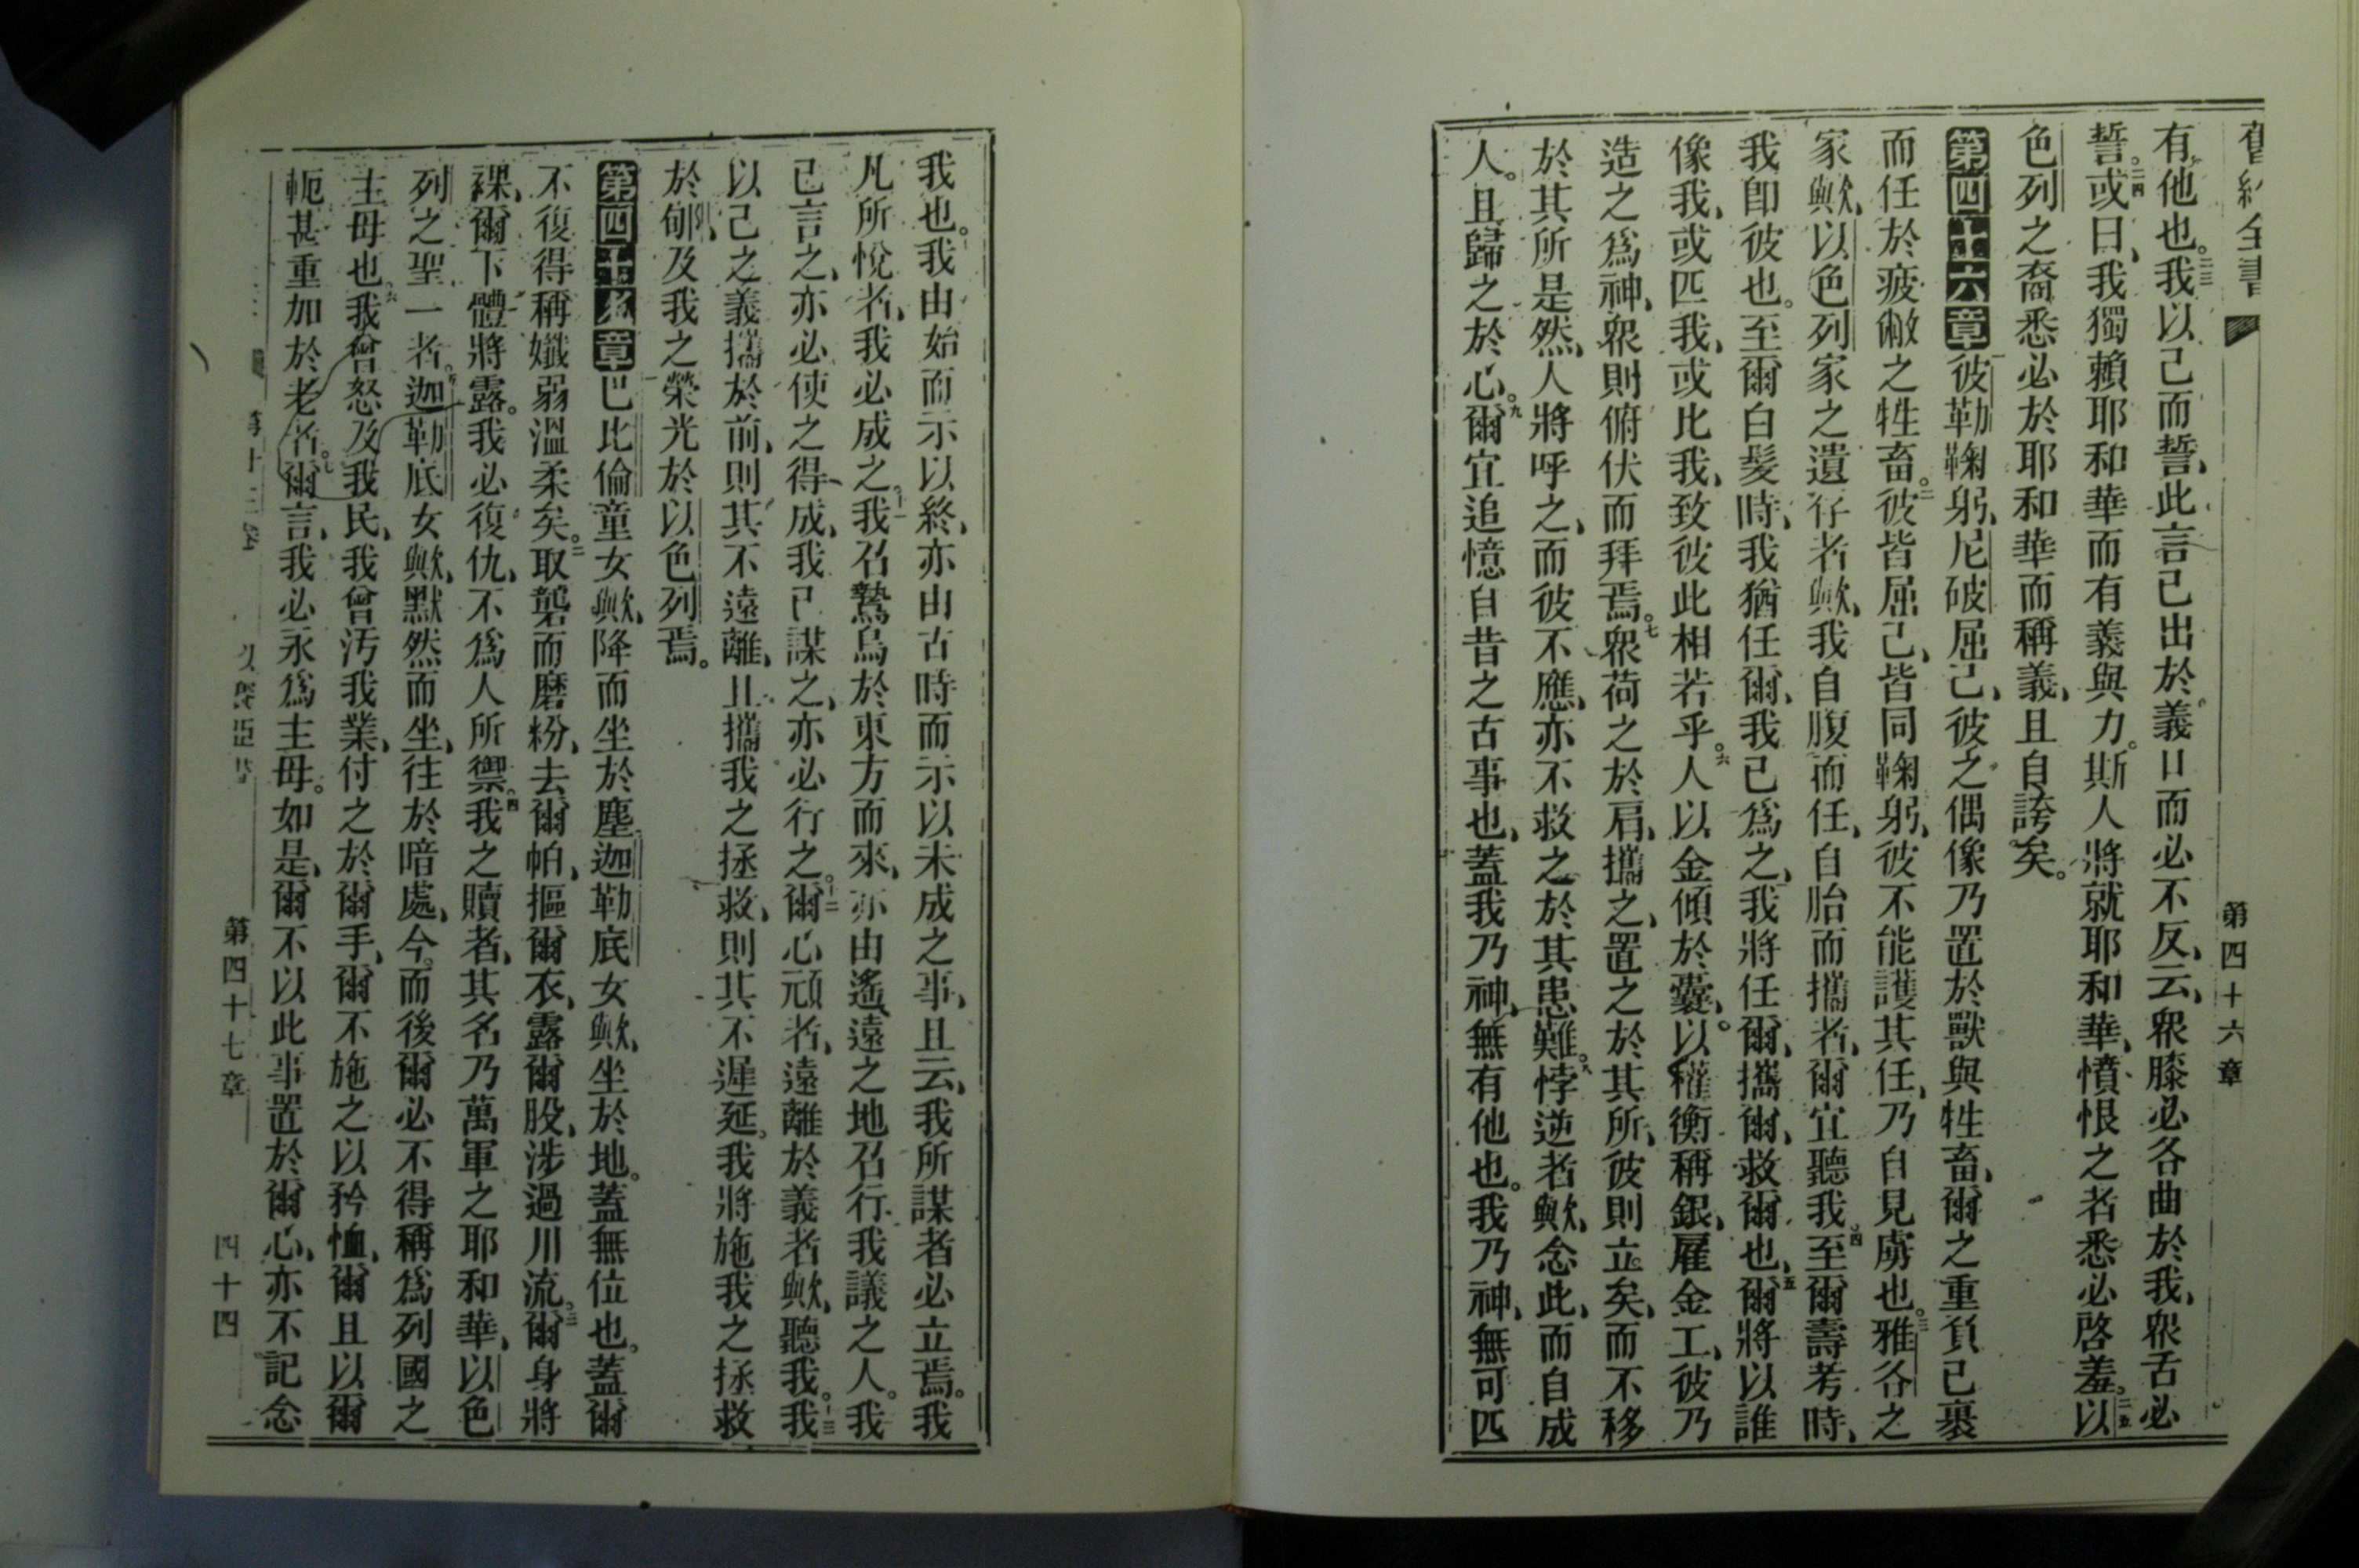 舊約全書
第四十六章
有他也。二三我以己而誓、此言已出於義口而必不反、云、衆膝必各曲於我、衆舌必
誓。二四或曰、我獨賴耶和華而有義與力。斯人將就耶和華、憤恨之者悉必啓羞。二五以
色列之裔悉必於耶和華而稱義、且自誇矣。
第四十六章一彼勒鞠躬、尼破屈己、彼之偶像乃置於獸與牲畜、爾之重負已裹
而任於疲敝之牲畜。二彼皆屈己、皆同鞠躬、彼不能護其任、乃自見虜也。三雅各之
家歟、以色列家之遺存者歟、我自腹而任、自胎而攜者、爾宜聽我。四至爾壽考時、
我卽彼也。至爾白髮時、我猶任爾、我已爲之、我將任爾、攜爾、救爾也、五爾將以誰
像我、或匹我、或比我、致彼此相若乎。六人以金傾於囊、以權衡稱銀、雇金工、彼乃
造之爲神、衆則俯伏而拜焉。七衆荷之於肩、攜之、置之於其所、彼則立矣、而不移
於其所是然、人將呼之、而彼不應、亦不救之於其患難。八悖逆者歟、念此、而自成
人。且歸之於心。九爾宜追憶自昔之古事也、蓋我乃神、無有他也。我乃神、無可匹
我也。十我由始而示以終、亦由古時而示以未成之事、且云、我所謀者必立焉。我
凡所悅者、我必成之。十一我召鷙鳥於東方而來、亦由遙遠之地召行我議之人。我
已言之、亦必使之得成、我已謀之、亦必行之。十二爾心頑者、遠離於義者歟、聽我。十三我
以己之義攜於前、則其不遠離、且攜我之拯救、則其不遲延。我將施我之拯救
於郇、及我之榮光於以色列焉。
第四十七章一巴比倫童女歟、降而坐於塵、迦勒底女歟、坐於地。蓋無位也。蓋爾
不復得稱孅弱溫柔矣。二取磐而磨粉、去爾帕、摳爾衣、露爾股、涉過川流。三爾身將
裸、爾下體將露。我必復仇、不爲人所禦。四我之贖者、其名乃萬軍之耶和華、以色
列之聖一者。五迦勒底女歟、默然而坐、往於暗處、今而後爾必不得稱爲列國之
主母也。六我曾怒及我民、我曾汚我業、付之於爾手、爾不施之以矜恤、爾且以爾
軛甚重加於老者。七爾言、我必永爲主母。如是、爾不以此事置於爾心、亦不記念
第四十七章
四十四